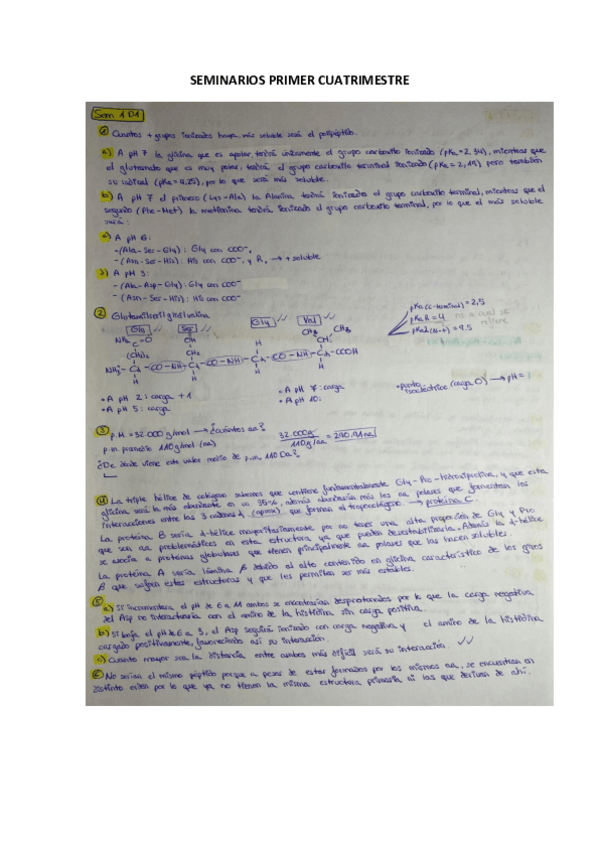 SEMINARIOS PRIMER CUATRIMESTRE
Sem 1 D1
① Cuantos + grupos ionizados haya más soluble será el polipéptido.
a) A pH 7 la glicina que es apolar, tendrá únicamente el grupo carboxilo ionizado (pKa = 2,34), mientras que
el glutamato que es muy polar, tendrá el grupo carboxilo terminal ionizado (pKa = 2,19), pero también
su radical (pKa = 4,25), por lo que será más soluble.
b) A pH 7 el primero (Lys-Ala) la Alanina tendrá ionizado el grupo carboxilo terminal, mientras que el
segundo (Phe-Met) la metionina tendrá ionizado el grupo carboxilo terminal, por lo que el más soluble
será:
A pH 6:
- (Ala-Ser-Gly): Gly con COO⁻,
- (Asn-Ser-His): His con COO⁻, y R, → + soluble
A pH 3:
- (Ala-Asp-Gly): Gly con COO⁻
- (Asn-Ser-His): His con COO⁻
②
Glu Ser Gly Val
pKa (C-terminal) = 2,5
pKa R = 4
= 9.5
• A pH 2: carga + 1
• A pH 5: carga
• A pH 7: carga
• A pH 10:
(carga 0) → pH =
③ P.M. = 32.000 g/mol → ¿cuántos aa?
p.m promedio 110 g/mol (aa)
32.000g / 110 g/aa = 290.91 aa
¿De dónde viene este valor medio de p.m. 110 Da?
④ La triple hélice de colágeno sabemos que contiene fundamentalmente Gly-Pro-hidroxiprolina, y que esta
glicina será la más abundante en un 35%, además abundarán más los aa polares que fomentan las
interacciones entre las 3 cadenas (aprox) que forman el tropocolágeno → proteína C.
La proteína B sería α-hélice mayoritariamente por no tener una alta proporción de Gly y Pro
que son aa problemáticos en esta estructura ya que pueden desestabilizarla. Además la α-hélice
se asocia a proteínas globulares que tienen principalmente aa polares que las hacen solubles.
La proteína A sería lámina β debido al alto contenido en glicina característico de los giros
β que sufren estas estructuras y que les permiten ser más estables.
⑤ a) Si incrementara el pH de 6 a 11 ambos se encontrarían desprotonados por lo que la carga negativa
del Asp no interactuaría con el amino de la histidina sin carga positiva.
b) Si baja el pH de 6 a 3, el Asp seguirá ionizado con carga negativa y el amino de la histidina
cargado positivamente, favoreciendo así su interacción.
c) Cuanto mayor sea la distancia entre ambos más difícil será su interacción
⑥ No serían el mismo péptido porque a pesar de estar formados por los mismos aa, se encuentran en
distinto orden por lo que ya no tienen la misma estructura primaria ni las que derivan de ahí.